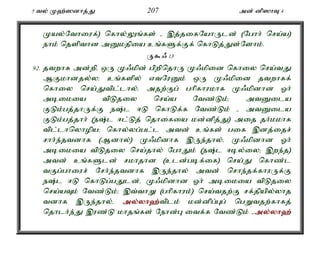 5 வல் முஹ்ஸனாத்து 207 அன் னிஸாவு 4
முயல்வோரைக்) கொல்லுங்கள் - இத்தகையோருடன் (போர் செய்ய)
நாம் தெளிவான அனுமதியை உங்களுக்குக் கொடுத்துள்ளோம்.
ருகூஃ 13
92. தவறாக அன்றி, ஒரு முஃமின் பிறிதொரு முஃமினை கொலை செய்வது
ஆகுமானதல்ல; உங்களில் எவரேனும் ஒரு முஃமினை தவறாகக்
கொலை செய்துவிட்டால், அதற்குப் பரிகாரமாக முஃமினான ஓர்
அடிமையை விடுதலை செய்ய வேண்டும்; அவனுடைய
குடும்பத்தாருக்கு நஷ்ட ஈடு கொடுக்க வேண்டும் - அவனுடைய
குடும்பத்தார் (நஷ்ட ஈட்டுத் தொகையை மன்னித்து) அதை தர்மமாக
விட்டாலொழிய; கொல்லப்பட்ட அவன் உங்கள் பகை இனத்தைச்
சார்ந்தவனாக (ஆனால்) முஃமினாக இருந்தால், முஃமினான ஓர்
அடிமையை விடுதலை செய்தால் போதும் (நஷ்ட ஈடில்லை; இறந்த)
அவன் உங்களுடன் சமாதான (உடன்படிக்கை) செய்து கொண்ட
வகுப்பாரைச் சேர்ந்தவனாக இருந்தால் அவன் சொந்தக்காரருக்கு
நஷ்ட ஈடு கொடுப்பதுடன், முஃமினான ஓர் அடிமையை விடுதலை
செய்யவும் வேண்டும்; இவ்வாறு (பரிகாரம்) செய்வதற்கு சக்தியில்லாத
வனாக இருந்தால், அல்லாஹ்விடம் மன்னிப்புப் பெறுவதற்காகத்
தொடர்ந்து இரண்டு மாதங்கள் நோன்பு வைக்க வேண்டும் -அல்லாஹ்